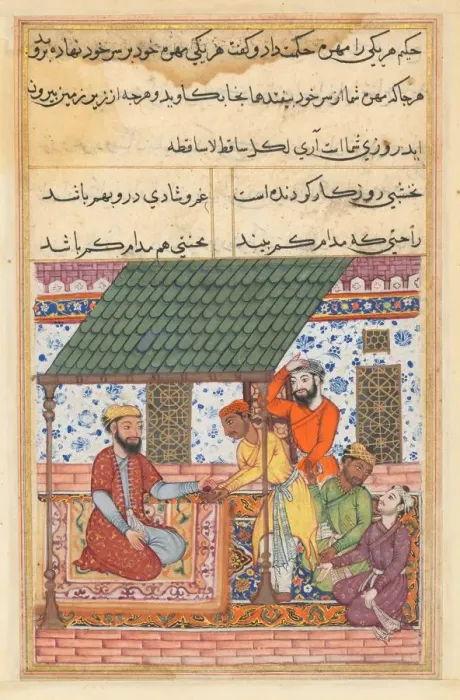 حکیم هر یکی را مهره حکمت داد و کفت هر یکی مهره خود بر سر خود نهاده بروید
هرجا که مهره شما از سر خود بیفتد بکاوید و هرجه از زیر زمین بیرون
اید روزی شما است آری لکل ساقط لاساقطه
نخشبی روز کار کردنده است غم و شادی درو بهم باشد
راحتی که مدام کم بیند محنتی هم مدام کم باشد